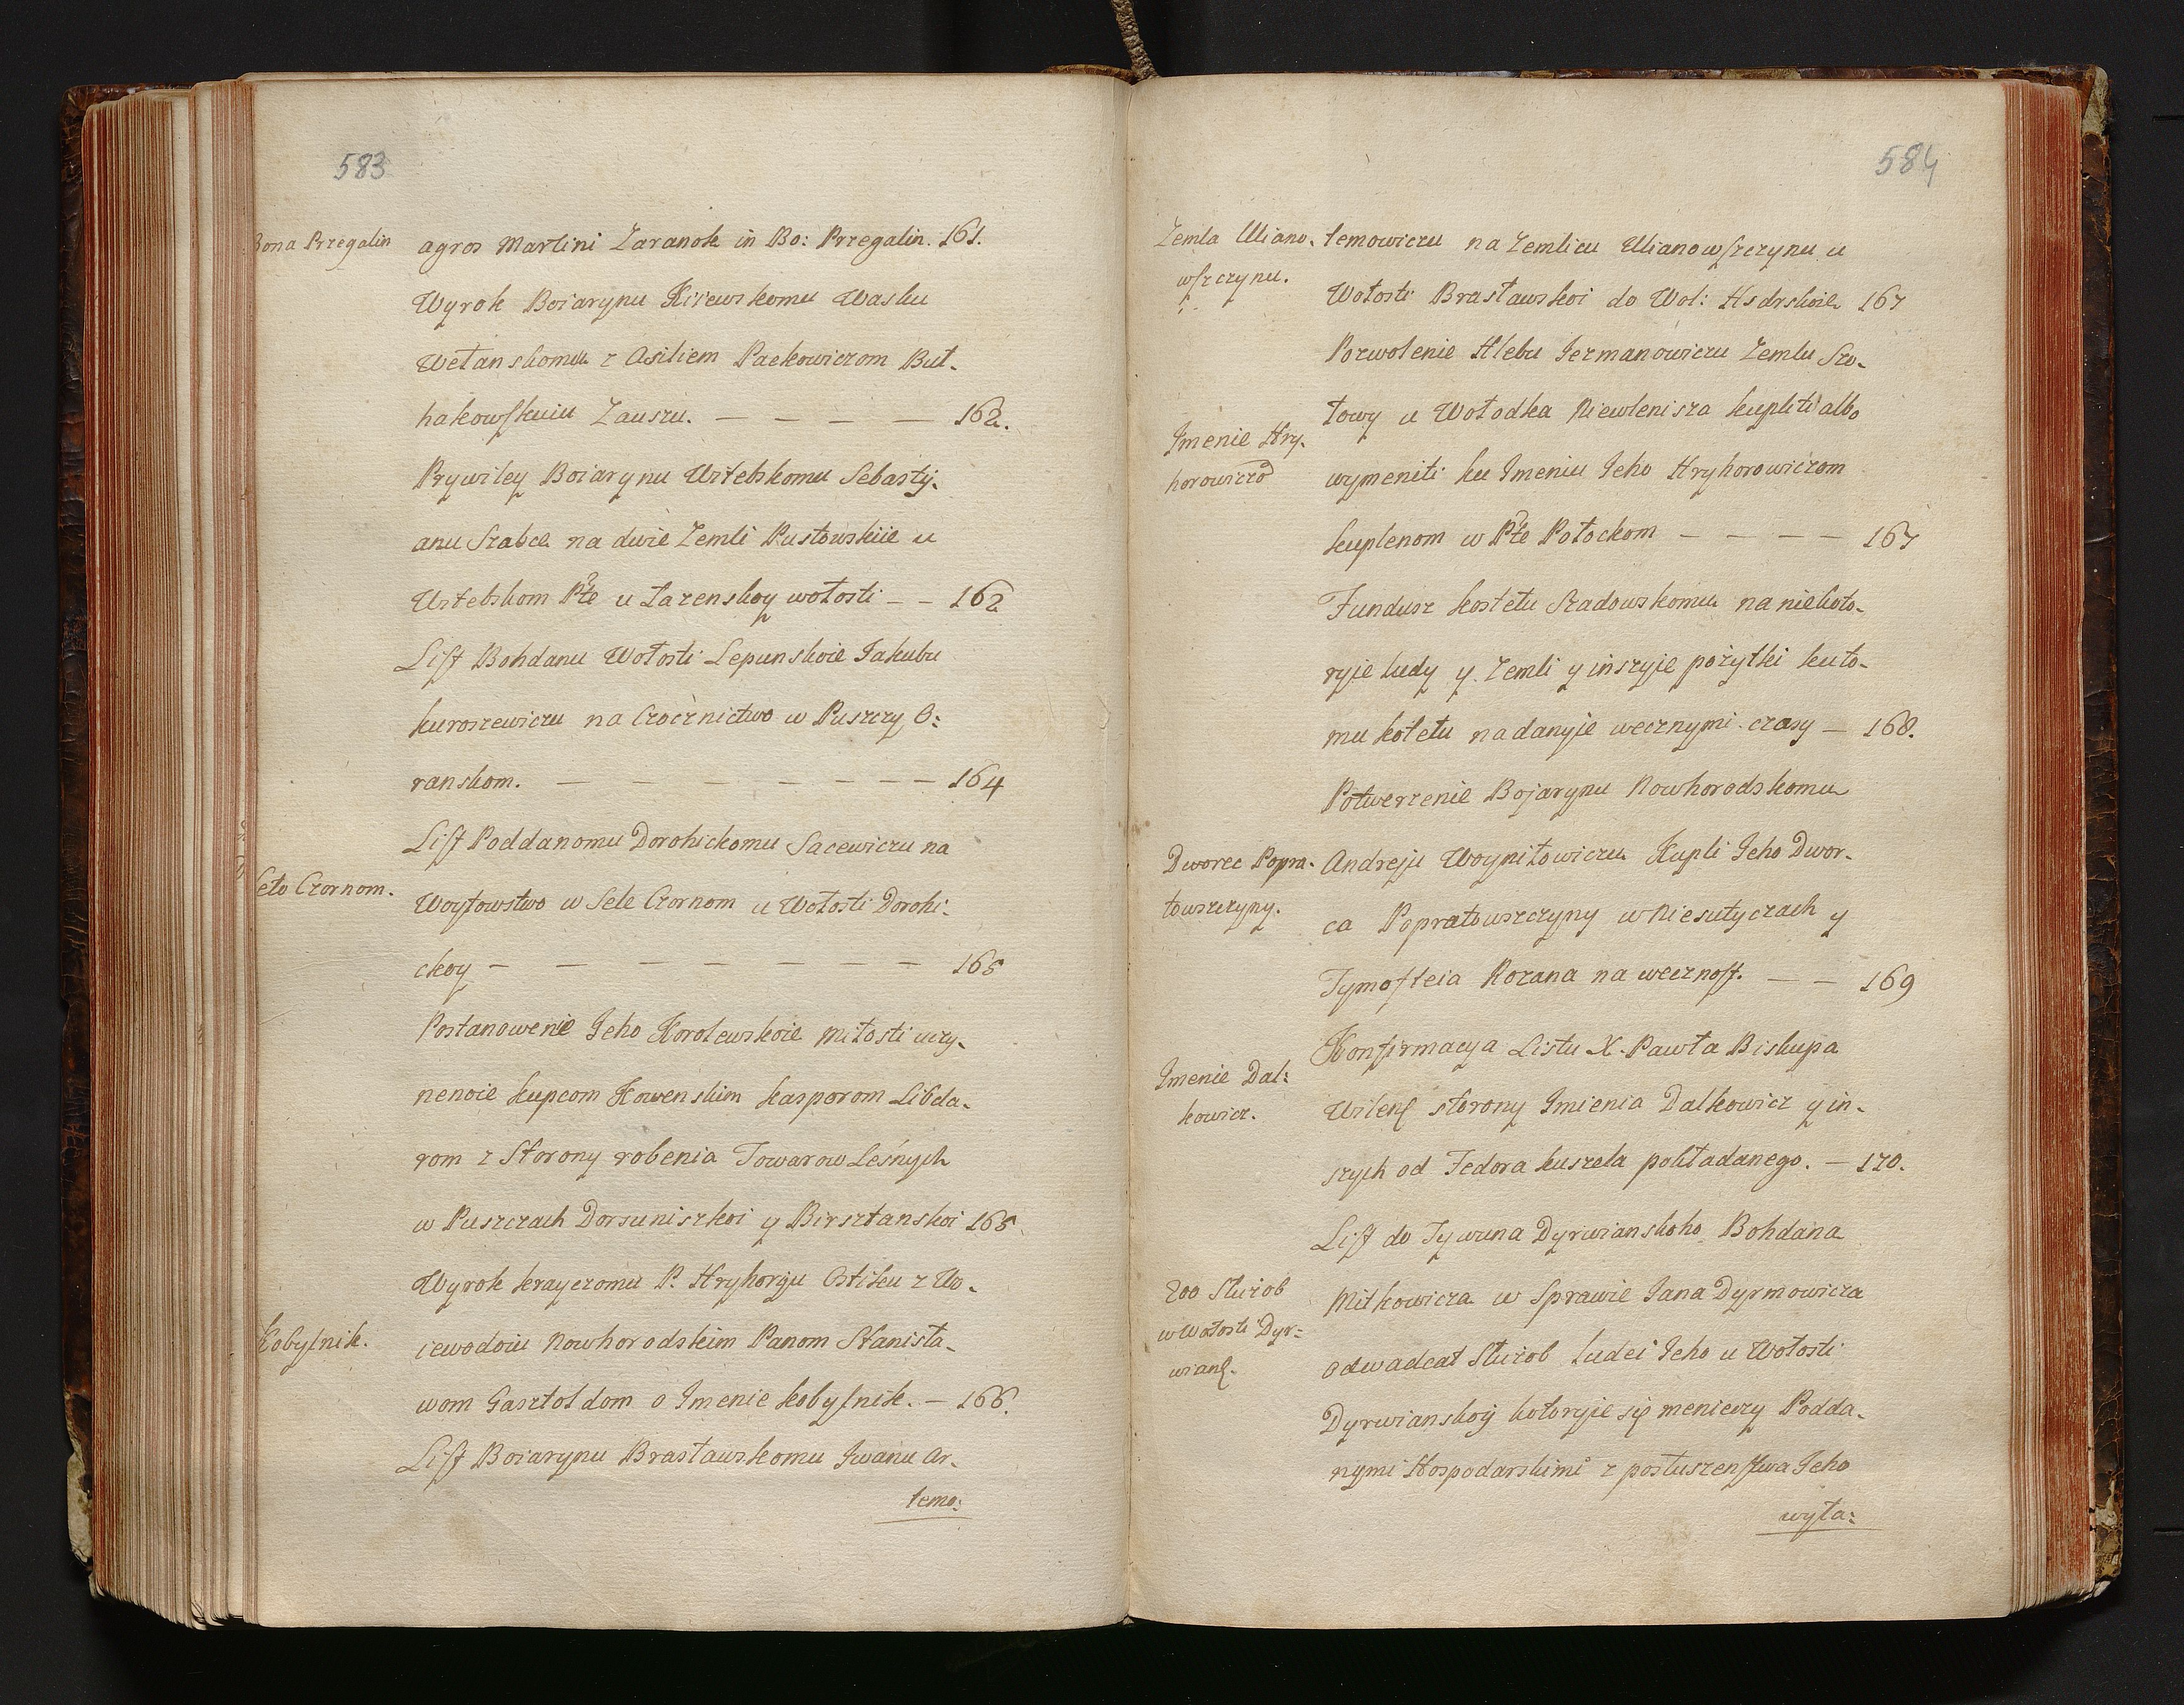 583
Bona Przegalin
agros Martini Zaranok in Bo: Przegalin. 161.
Wyrok Boiarynu Kiiewskomu Wasku
Wełanskomu z Asiliem Packowiczom Buł-
hakowskuiu Zauszu. — — — — 162.
Prywiley Boiarynu Witebskomu Sebasty-
anu Szabce na dwie Zemli Pustowskiie u
Witebskom Płe u Łazenskoy wołosti — — 162
List Bohdanu Wołosti Lepunskoie Jakubu
kuroszewiczu na Croicznictwo w Puszczy O:
ranskom. — — — — — — — 164
List Poddanomu Dorohickomu Sacewiczu na
Seło Czornom.
Woytowstwo w Sele Czornom u Wołosti Dorohi-
ckoy — — — — — — — 165
Postanowenie Jeho Korolewskoie Miłosti uczy-
nenoie kupcom Kowenskim kasporom Libda-
rom z Storony robenia Towarow Leśnych
w Puszczach Dorsuniszkoi y Birsztanskoi 165
Wyrok krayczomu P. Hryhoriju Ostiku z Wo-
Kobylnik.
iewodoiu Nowhorodskim Panom Stanisła-
wom Gasztoldom o Imenie kobylnik. — 166.
List Boiarynu Brasławskomu Iwanu Ar-
temo:
584
Zemla Uliano-
wszczynu.
temowiczu na Zemlicu Ulianowszczynu u
Wołosti Brasławskoi do Wol: Hsdrskoie 167
Pozwolenie Hlebu Jezmanowiczu Zemlu Szo-
łowy u Wołodka Niewlenisza kupliti albo
Imenie Hry-
horowiczo
wymeniti ku Imeniu Jeho Hryhorowiczom
kuplenom w Płe Połockom — — — — 167
Fundusz kostełu Szadowskomu na niekoto-
ryie ludy y Zemli y inszyie pożytki kuto-
mu kołełu nadanyie wecznymi czasy — 168.
Potwerzenie Bojarynu Nowhorodskomu
Dworec Popra-
towszczyny.
Andreju Woyniłowiczu Kupli Jeho Dwor-
ca Popratowszczyny w Niesutyczach y
Tymofteia Rozana na wecznost. — — 169
Konfirmacya Listu X. Pawła Biskupa
Imenie Dal:
kowicz.
Wilenſ storony Imienia Dalkowicz y in-
szych od Fedora kuszela pokładanego. — 170.
List do Tywuna Dyrwianskoho Bohdana
200 Służob
w Wołosti Dyr:
wianſ.
Mitkowicza w Sprawie Jana Dyrmowicza
o dwadcat Służob ludei Jeho u Wołosti
Dyrwianskoy kotoryie się meniewy Podda-
nymi Hospodarskimi z posłuszenstwa Jeho
wyła: